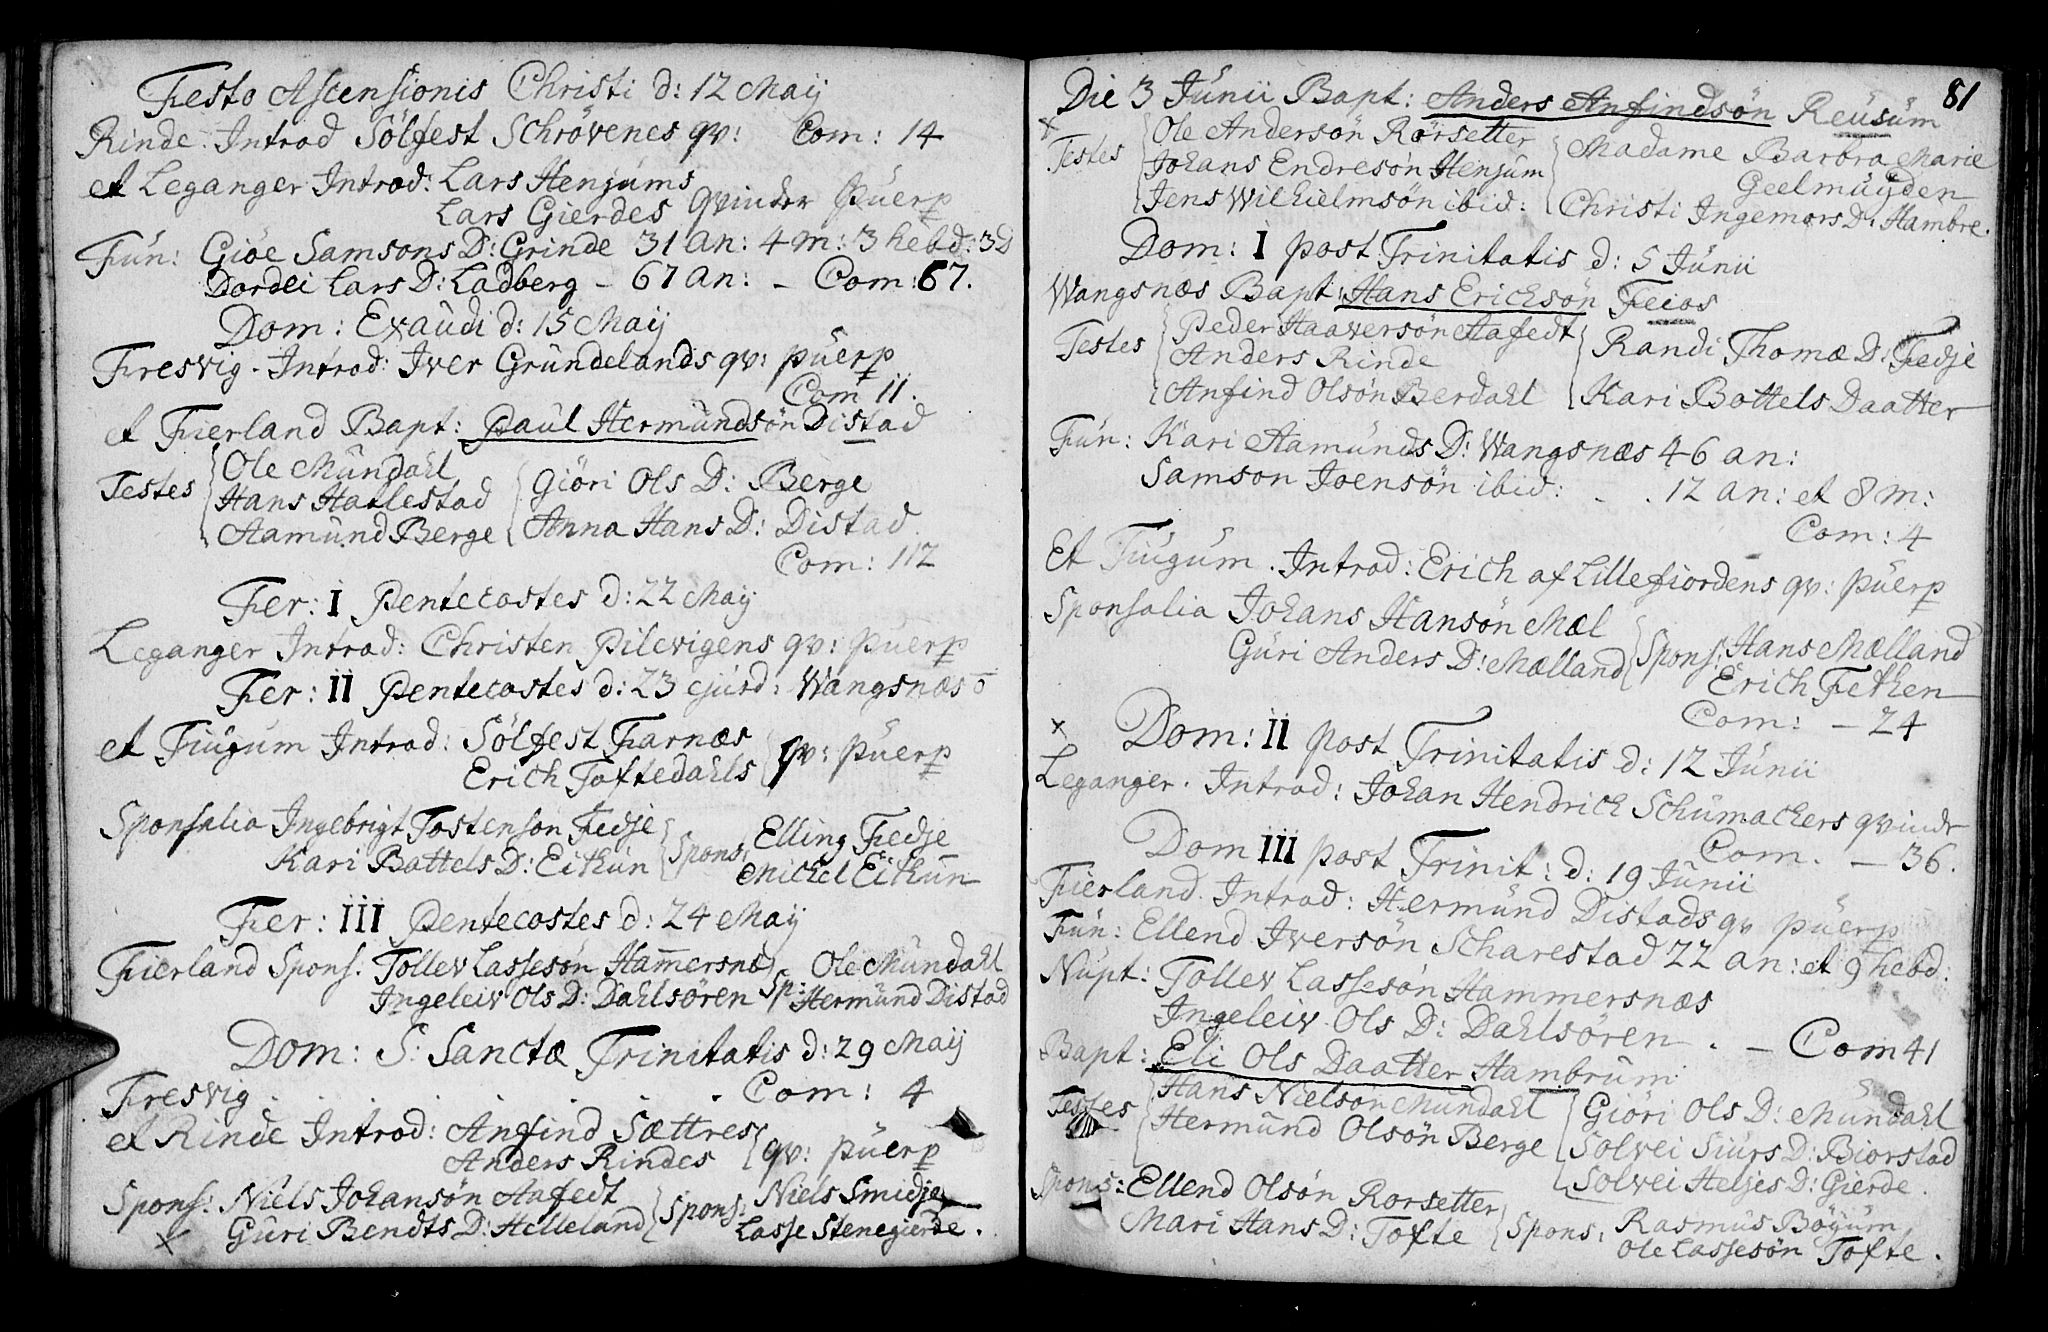 Festo Ascensionis Christi d: 12 Maij
Rinde. Introd Sölfest Schrövenes qv: Com: 14
et Leganger Introd: Lars Henjums
Lars Gierdes qvinder püerp
Fün: Giöe Samsons D: Grinde 31 an: 4 m: 3 hebd: 3 D
Dordei Lars D: Ladberg – 67 an: – Com: 67.
Dom: Exaudi d: 15 Maij
Fresvig. Introd: Iver Gründelands qv: püerp
Com 11.
et Fierland Bapt: Paul Hermündsön Distad
Testes Ole Mündahl
Hans Hatlestad
Aamünd Berge
Giöri Ols D: Berge
Anna Hans D: Distad
Com: 112
Fer: I Pentecostes d: 22 Maij
Leganger Introd: Christen Pilevigens qv: püerp
Fer: II Pentecostes d: 23 ejusd: Wangsnæs 0
et Fiügum Introd: Sölfest Farnæs
Erich Toftedahls qv: püerp
Sponsalia Ingebrigt Tostensön Fedje
Kari Battels D: Eitkün
Spons, Elling Fedje
Mickel Eitkün
Fer: III Pentecostes d: 24 Maij
Fierland Spons: Tollev Lassesön Ham̄ersnæs
Ingeleiv Ols D: Dahlsören
Sp: Ole Mündahl
Hermünd Distad
Dom: S: Sanctæ Trinitatis d: 29 Maij
Fresvig . . . . . . Com: 4
et Rinde Introd: Anfind Sættres
Anders Rindes qv: püerp
Spons: Niels Johansön Aafedt
Güri Bendts D: Helleland
Spons: Niels Smidje
Lasse Stenegierde.
81
Die 3 Junii Bapt: Anders Anfindsön Reüsüm
Testes Ole Andersön Rörsetter
Johans Endresön Henjum
Jens Wilhielmsön ibid:
Madame Barbra Marie
Geelmüyden
Christi Ingemars D: Hambre.
Dom: I post Trinitatis d: 5 Junii
Wangsnæs Bapt: Hans Ericksön Feios
Testes Peder Haaversön Aafedt
Anders Rinde
Anfind Olsön Berdahl
Randi Thomæ D: Fedje
Kari Bottels Daatter
Fün: Kari Aamünds D: Wangsnæs 46 an:
Samson Joensön ibid: . . 12 an: et 8 m:
Com: 4
Et Fiügum. Introd: Erich af Lillefiordens qv: püerp
Sponsalia Johans Hansön Mæl
Güri Anders D: Mælland
Spons: Hans Mælland
Erich Fethen
Com: – 24
Dom: II post Trinitatis d: 12 Junii
Leganger. Introd: Johan Hendrick Schumackers qvindr
Com. – 36.
Dom III post Trinit: d: 19 Junii
Fierland. Introd: Hermünd Distads qv püerp
Fün: Ellend Iversön Scharestad 22 an: et 9 hebd:
Nüpt: Tollev Lassesön Hammersnæs
Ingeleiv Ols D: Dahlsören . – Com 41
Bapt: Eli Ols Daatter Hambrum
Testes Hans Nielsön Mündahl
Hermünd Olsön Berge
Giöri Ols D: Mündahl
Solvei Siurs D: Biorstad
Solvei Heljes D: Gierde.
Spons: Ellend Olsön Rorsetter
Mari Hans D: Tofte
Spons, Rasmus Böyum
Ole Lassesön Tofte.